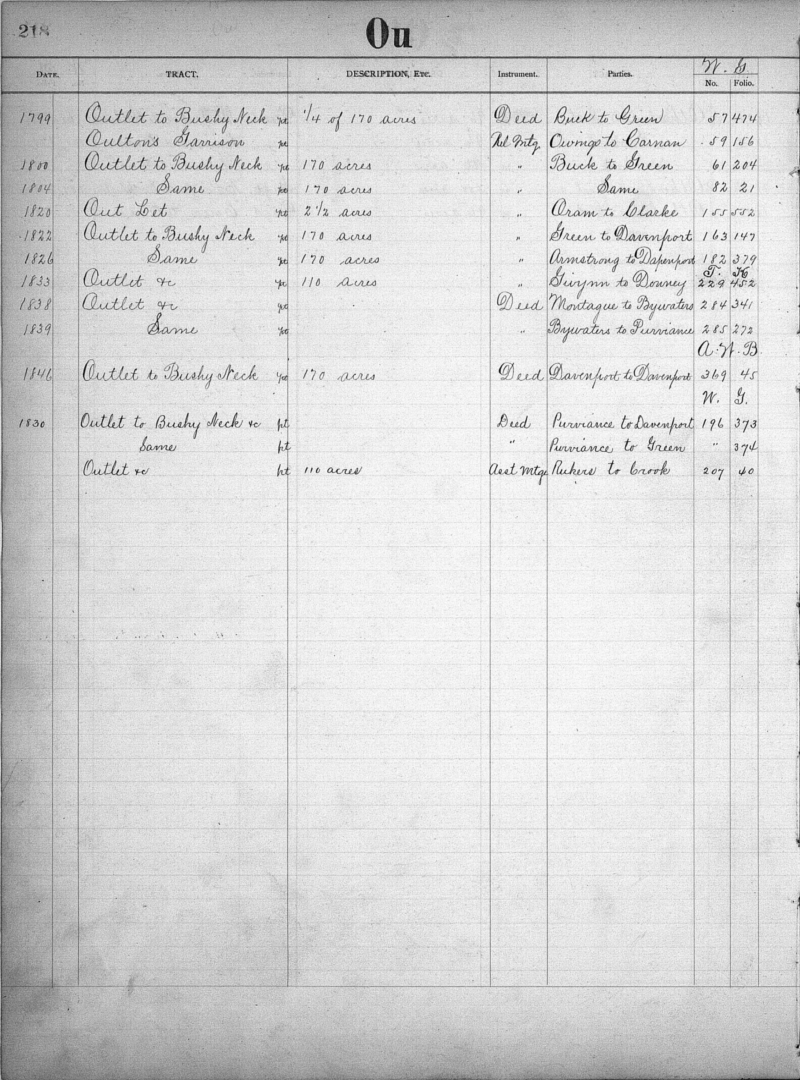 218
Ou
W. G.
DATE. TRACT. DESCRIPTION, ETC. Instrument. Parties. No. Folio.
1799 Outlet to Bushy Neck pt 1/4 of 170 acres Deed Buck to Green 57 474
Oulton's Garrison pt Rel Mtg. Owings to Carnan 59 156
1800 Outlet to Bushy Neck pt 170 acres " Buck to Green 61 204
1804 Same pt 170 acres " Same 82 21
1820 Out Let pt 2 1/2 acres " Oram to Clarke 155 552
1822 Outlet to Bushy Neck pt 170 acres " Green to Davenport 163 147
1826 Same pt 170 acres " Armstrong to Dapenport 182 379
T. K
1833 Outlet &c pt 110 acres " Gwynn to Downey 229 452
1838 Outlet &c pt Deed Montague to Bywaters 284 341
1839 Same pt " Bywaters to Purviance 285 272
A. W. B.
1846 Outlet to Bushy Neck pt 170 acres Deed Davenport to Davenport 369 45
W. G.
1830 Outlet to Bushy Neck &c pt Deed Purviance to Davenport 196 373
Same pt " Purviance to Green " 374
Outlet &c pt 110 acres Asst Mtge to Crook 207 40